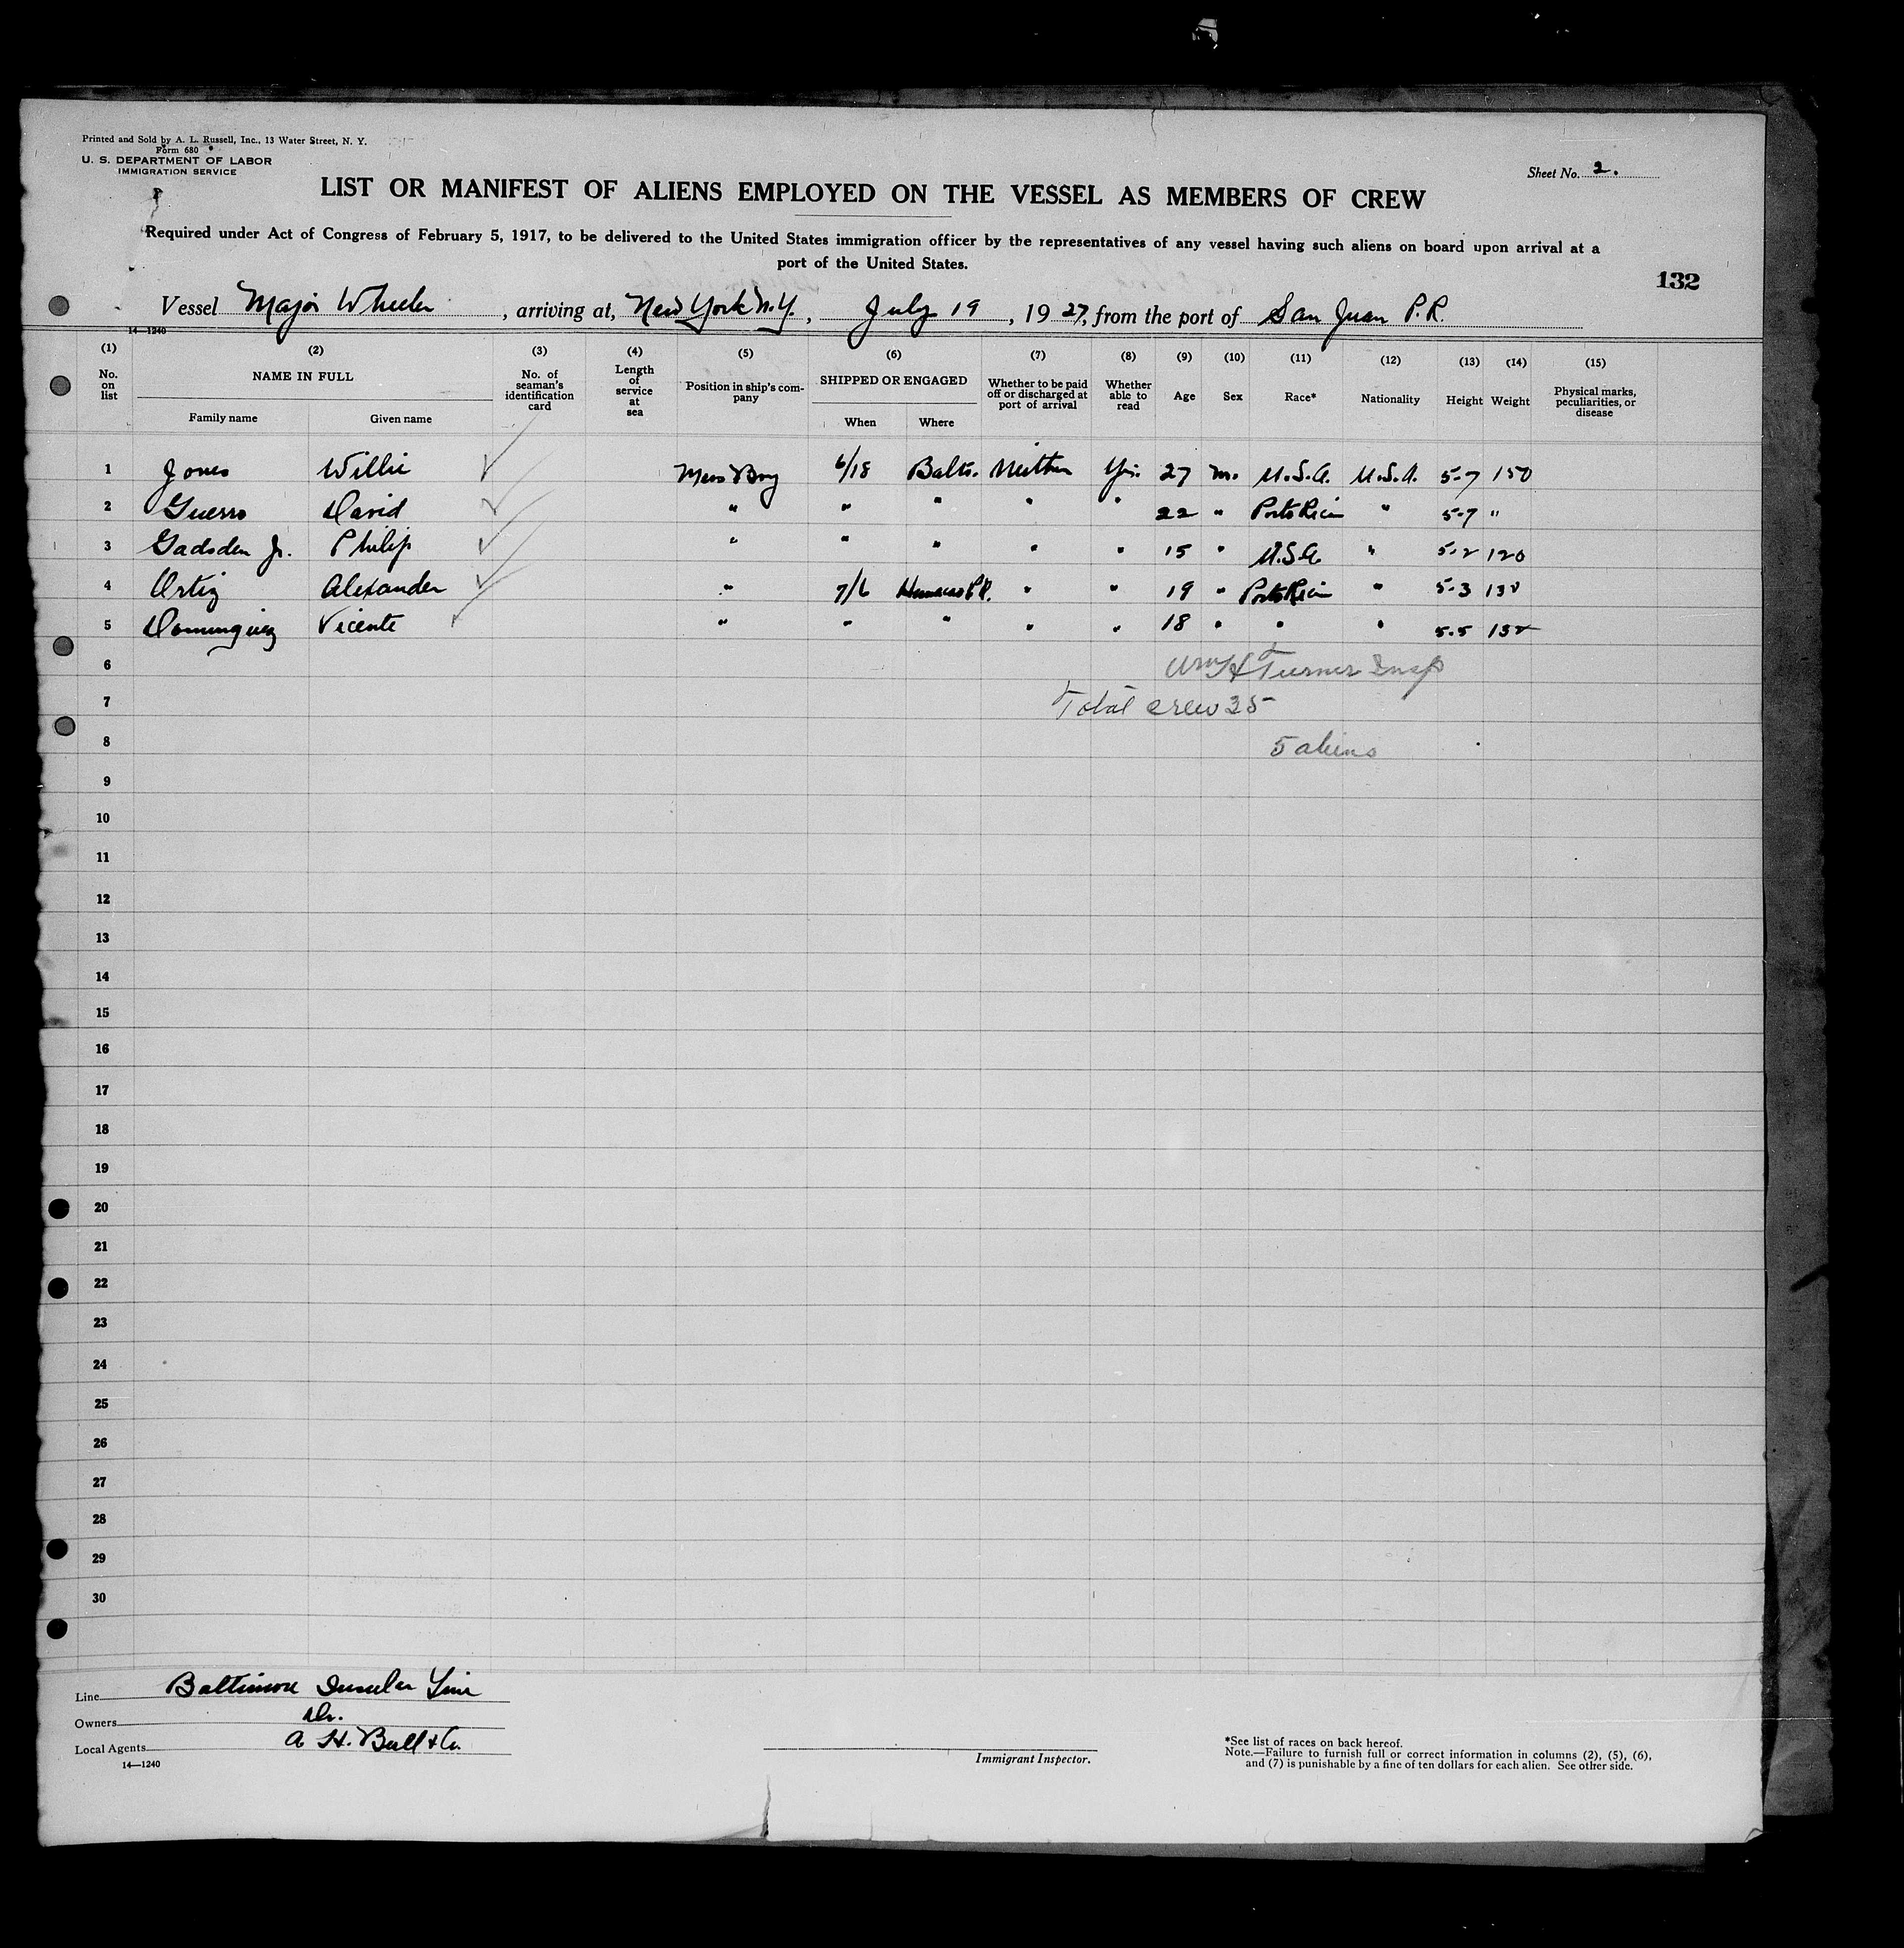 Printed and Sold by A. L. Russell, Inc., 13 Water Street, N. Y.
Form 680
U. S. DEPARTMENT OF LABOR
IMMIGRATION SERVICE
Sheet No. 2.
LIST OR MANIFEST OF ALIENS EMPLOYED ON THE VESSEL AS MEMBERS OF CREW
Required under Act of Congress of February 5, 1917, to be delivered to the United States immigration officer by the representatives of any vessel having such aliens on board upon arrival at a
port of the United States.
132
Vessel Major Wheeler, arriving at, New York N.Y., July 19, 1927, from the port of San Juan P.R.
14—1240
(1) (2) (3) (4) (5) (6) (7) (8) (9) (10) (11) (12) (13) (14) (15)
No. on list NAME IN FULL Family name Given name No. of seaman's identification card Length of service at sea Position in ship's company SHIPPED OR ENGAGED When Where Whether to be paid off or discharged at port of arrival Whether able to read Age Sex Race* Nationality Height Weight Physical marks, peculiarities, or disease
1 Jones Willie Mess Boy 6/18 Balto. Neither Yes. 27 m. U.S.A. U.S.A. 5-7 150
2 Guerro David " " " " " 22 " Porto Rican " 5-7 "
3 Gadsden Jr. Philip " " " " " 15 " U.S.A. " 5-2 120
4 Ortiz Alexander " 7/6 Humacao P.R. " " 19 " Porto Rican " 5-3 130
5 Dominguez Vicente " " " " " 18 " " " 5-5
6 Wm H Turner Insp
7 Total crew 35
8 5 aliens
9
10
11
12
13
14
15
16
17
18
19
20
21
22
23
24
25
26
27
28
29
30
Line Baltimore Insular Line
Owners Do.
Local Agents A. H. Bull & Co.
14—1240
Immigrant Inspector.
*See list of races on back hereof.
Note.—Failure to furnish full or correct information in columns (2), (5), (6),
and (7) is punishable by a fine of ten dollars for each alien. See other side.